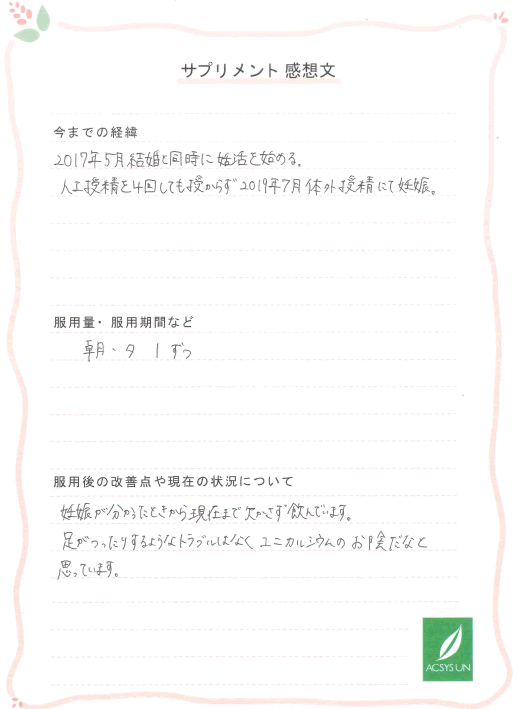 サプリメント 感想文
今までの経緯
2017年5月結婚と同時に妊活を始める。
人工授精を4回しても授からず 2019年7月体外授精にて妊娠。
服用量・服用期間など
朝・夕 1 ずつ
服用後の改善点や現在の状況について
妊娠が分かったときから現在まで欠かさず飲んでいます。
足がつったりするようなトラブルはなく ユニカルシウムのお陰だなと
思っています。
ACSYS UN